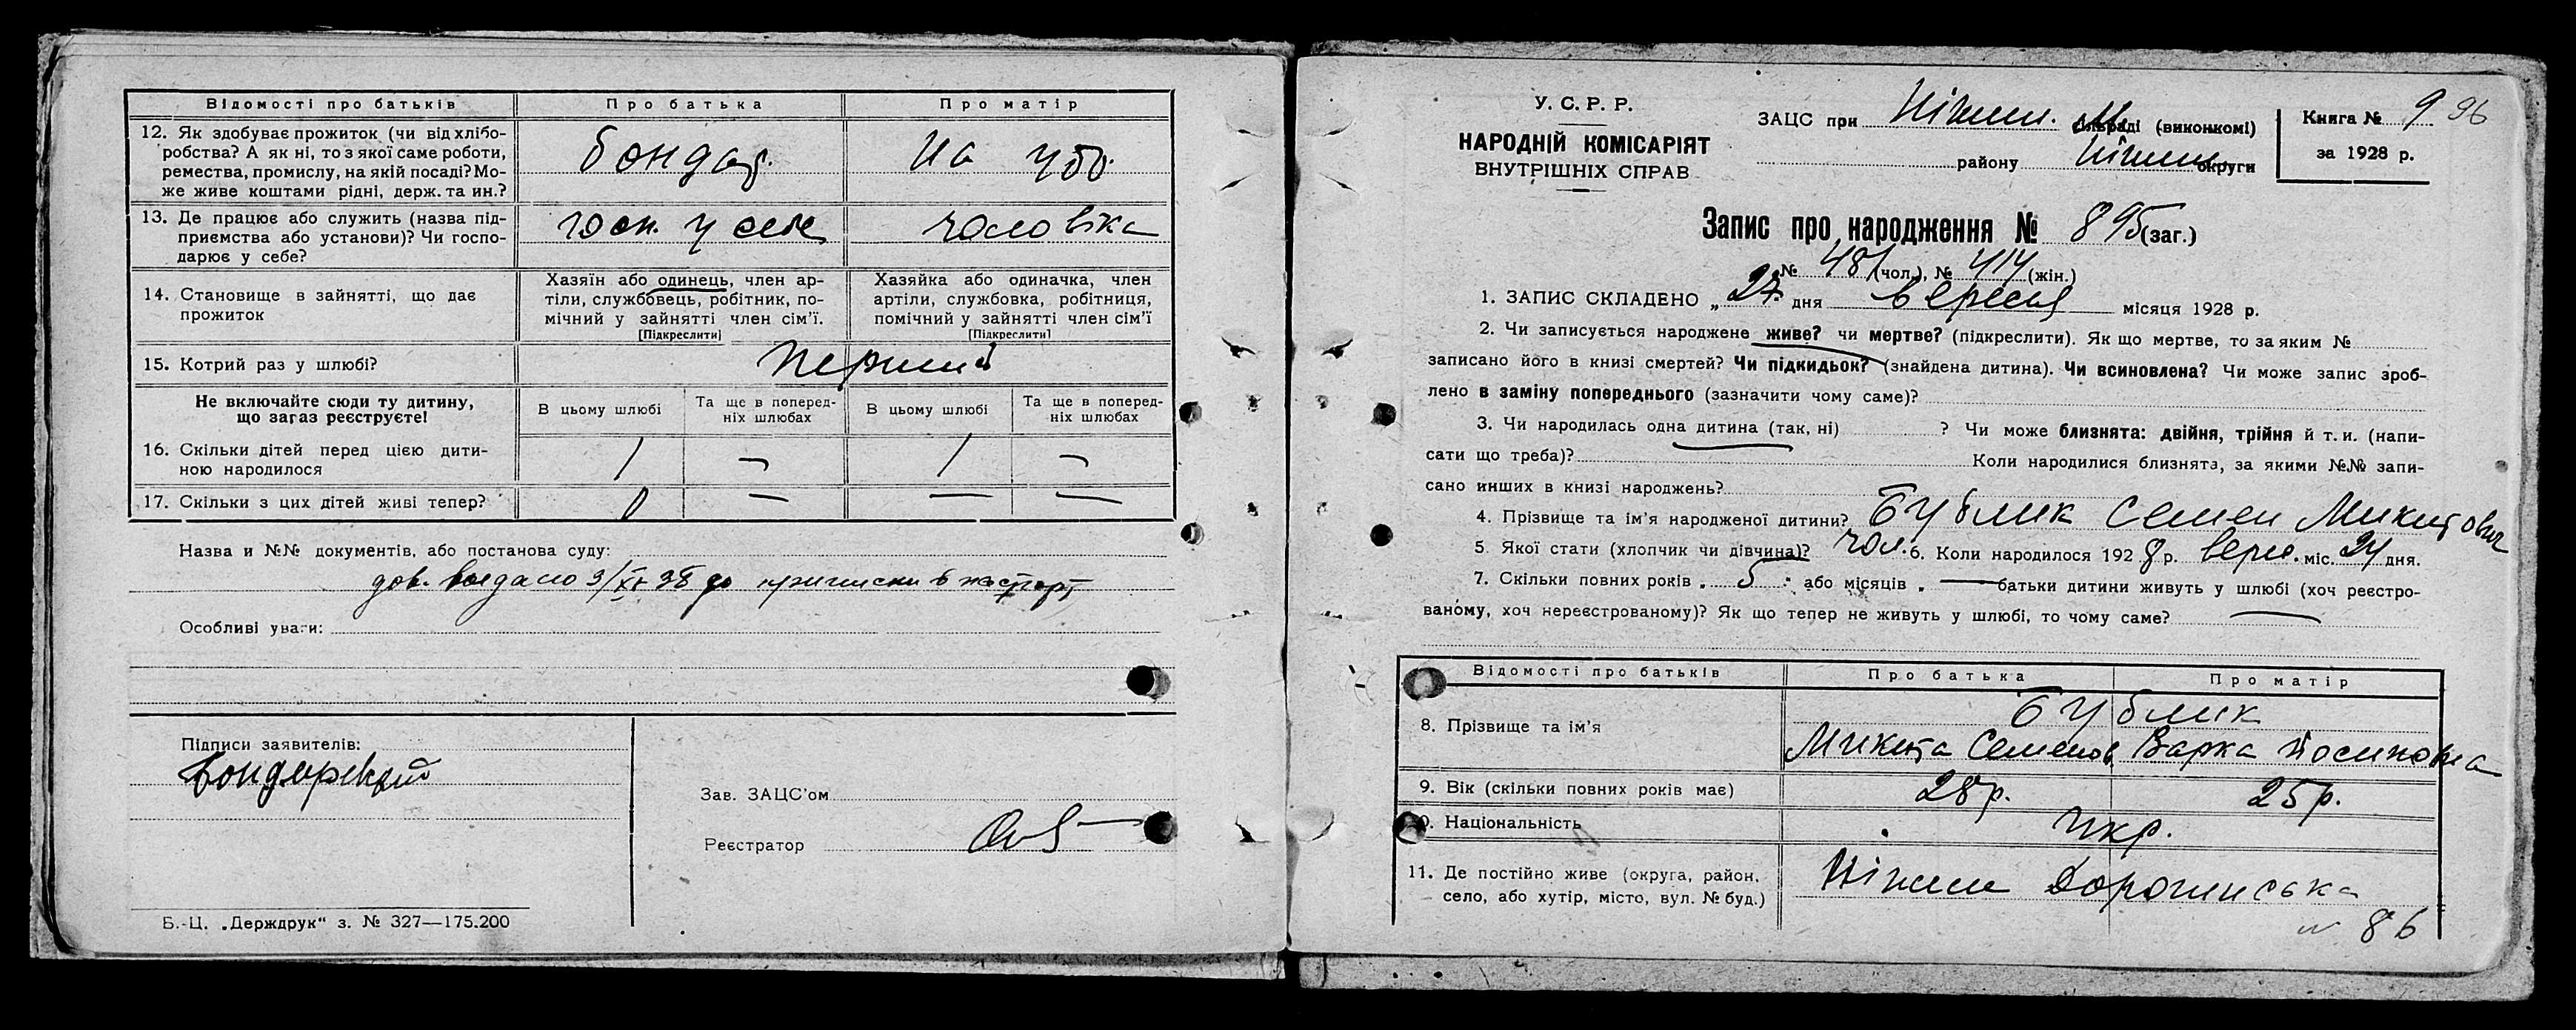 Відомості про батьків Про батька Про матір
12. Як здобуває прожиток (чи від хлібо-
робства? А як ні, то з якої саме роботи,
ремества, промислу, на якій посаді? Мо-
же живе коштами рідні, держ. та ин.?
бондар. на утр.
13. Де працює або служить (назва під-
приємства або установи)? Чи госпо-
дарює у себе?
госп. у себе чоловіка
14. Становище в зайнятті, що дає
прожиток
Хазяїн або одинець, член ар-
тіли, службовець, робітник, по-
мічний у зайнятті член сім'ї.
[Підкреслити]
Хазяйка або одиначка, член
артіли, службовка, робітниця,
помічний у зайнятті член сім'ї
[Підкреслити]
15. Котрий раз у шлюбі? перший
Не включайте сюди ту дитину,
що загаз реєструєте!
В цьому шлюбі Та ще в поперед-
ніх шлюбах В цьому шлюбі Та ще в поперед-
ніх шлюбах
16. Скільки дітей перед цією дити-
ною народилося 1 — 1 —
17. Скільки з цих дітей живі тепер? 0 — — —
Назва и №№ документів, або постанова суду:
дов. выдано 3/XI 38 до приписки в паспорт
Особливі уваги:
Підписи заявителів:
Зав. ЗАЦС'ом
Реєстратор
Б.-Ц. „Держдрук“ з. № 327—175.200
У. С. Р. Р.
НАРОДНІЙ КОМІСАРІЯТ
ВНУТРІШНІХ СПРАВ
ЗАЦС при Ніжин. М. раді (виконкомі)
району Ніжин. округи
Книга № 9 96
за 1928 р.
Запис про народження № 895 (заг.)
№ 481 (чол.), № 414 (жін.)
1. ЗАПИС СКЛАДЕНО „27 дня вересня місяця 1928 р.
2. Чи записується народжене живе? чи мертве? (підкреслити). Як що мертве, то за яким №
записано його в книзі смертей? Чи підкидьок? (знайдена дитина). Чи всиновлена? Чи може запис зроб-
лено в заміну попереднього (зазначити чому саме)?
3. Чи народилась одна дитина (так, ні) ? Чи може близнята: двійня, трійня й т. и. (напи-
сати що треба)? Коли народилися близнята, за якими №№ запи-
сано инших в книзі народжень?
4. Прізвище та ім'я народженої дитини? Бублик Семен Микитович
5. Якої стати (хлопчик чи дівчина)? чол. 6. Коли народилося 1928 р. верес. міс. 24 дня.
7. Скільки повних років „ 5 „ або місяців „ — батьки дитини живуть у шлюбі (хоч реєстро-
ваному, хоч нереєстрованому)? Як що тепер не живуть у шлюбі, то чому саме? —
Відомості про батьків Про батька Про матір
8. Прізвище та ім'я Бублик
Микита Семенов Варка Йосиповна
9. Вік (скільки повних років має) 28 р. 25 р.
10. Національність Укр.
11. Де постійно живе (округа, район,
село, або хутір, місто, вул. № буд.)
Ніжин Дорогинська
№ 86